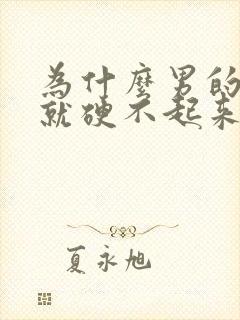 為什麼男的
就硬不起來
夏永旭